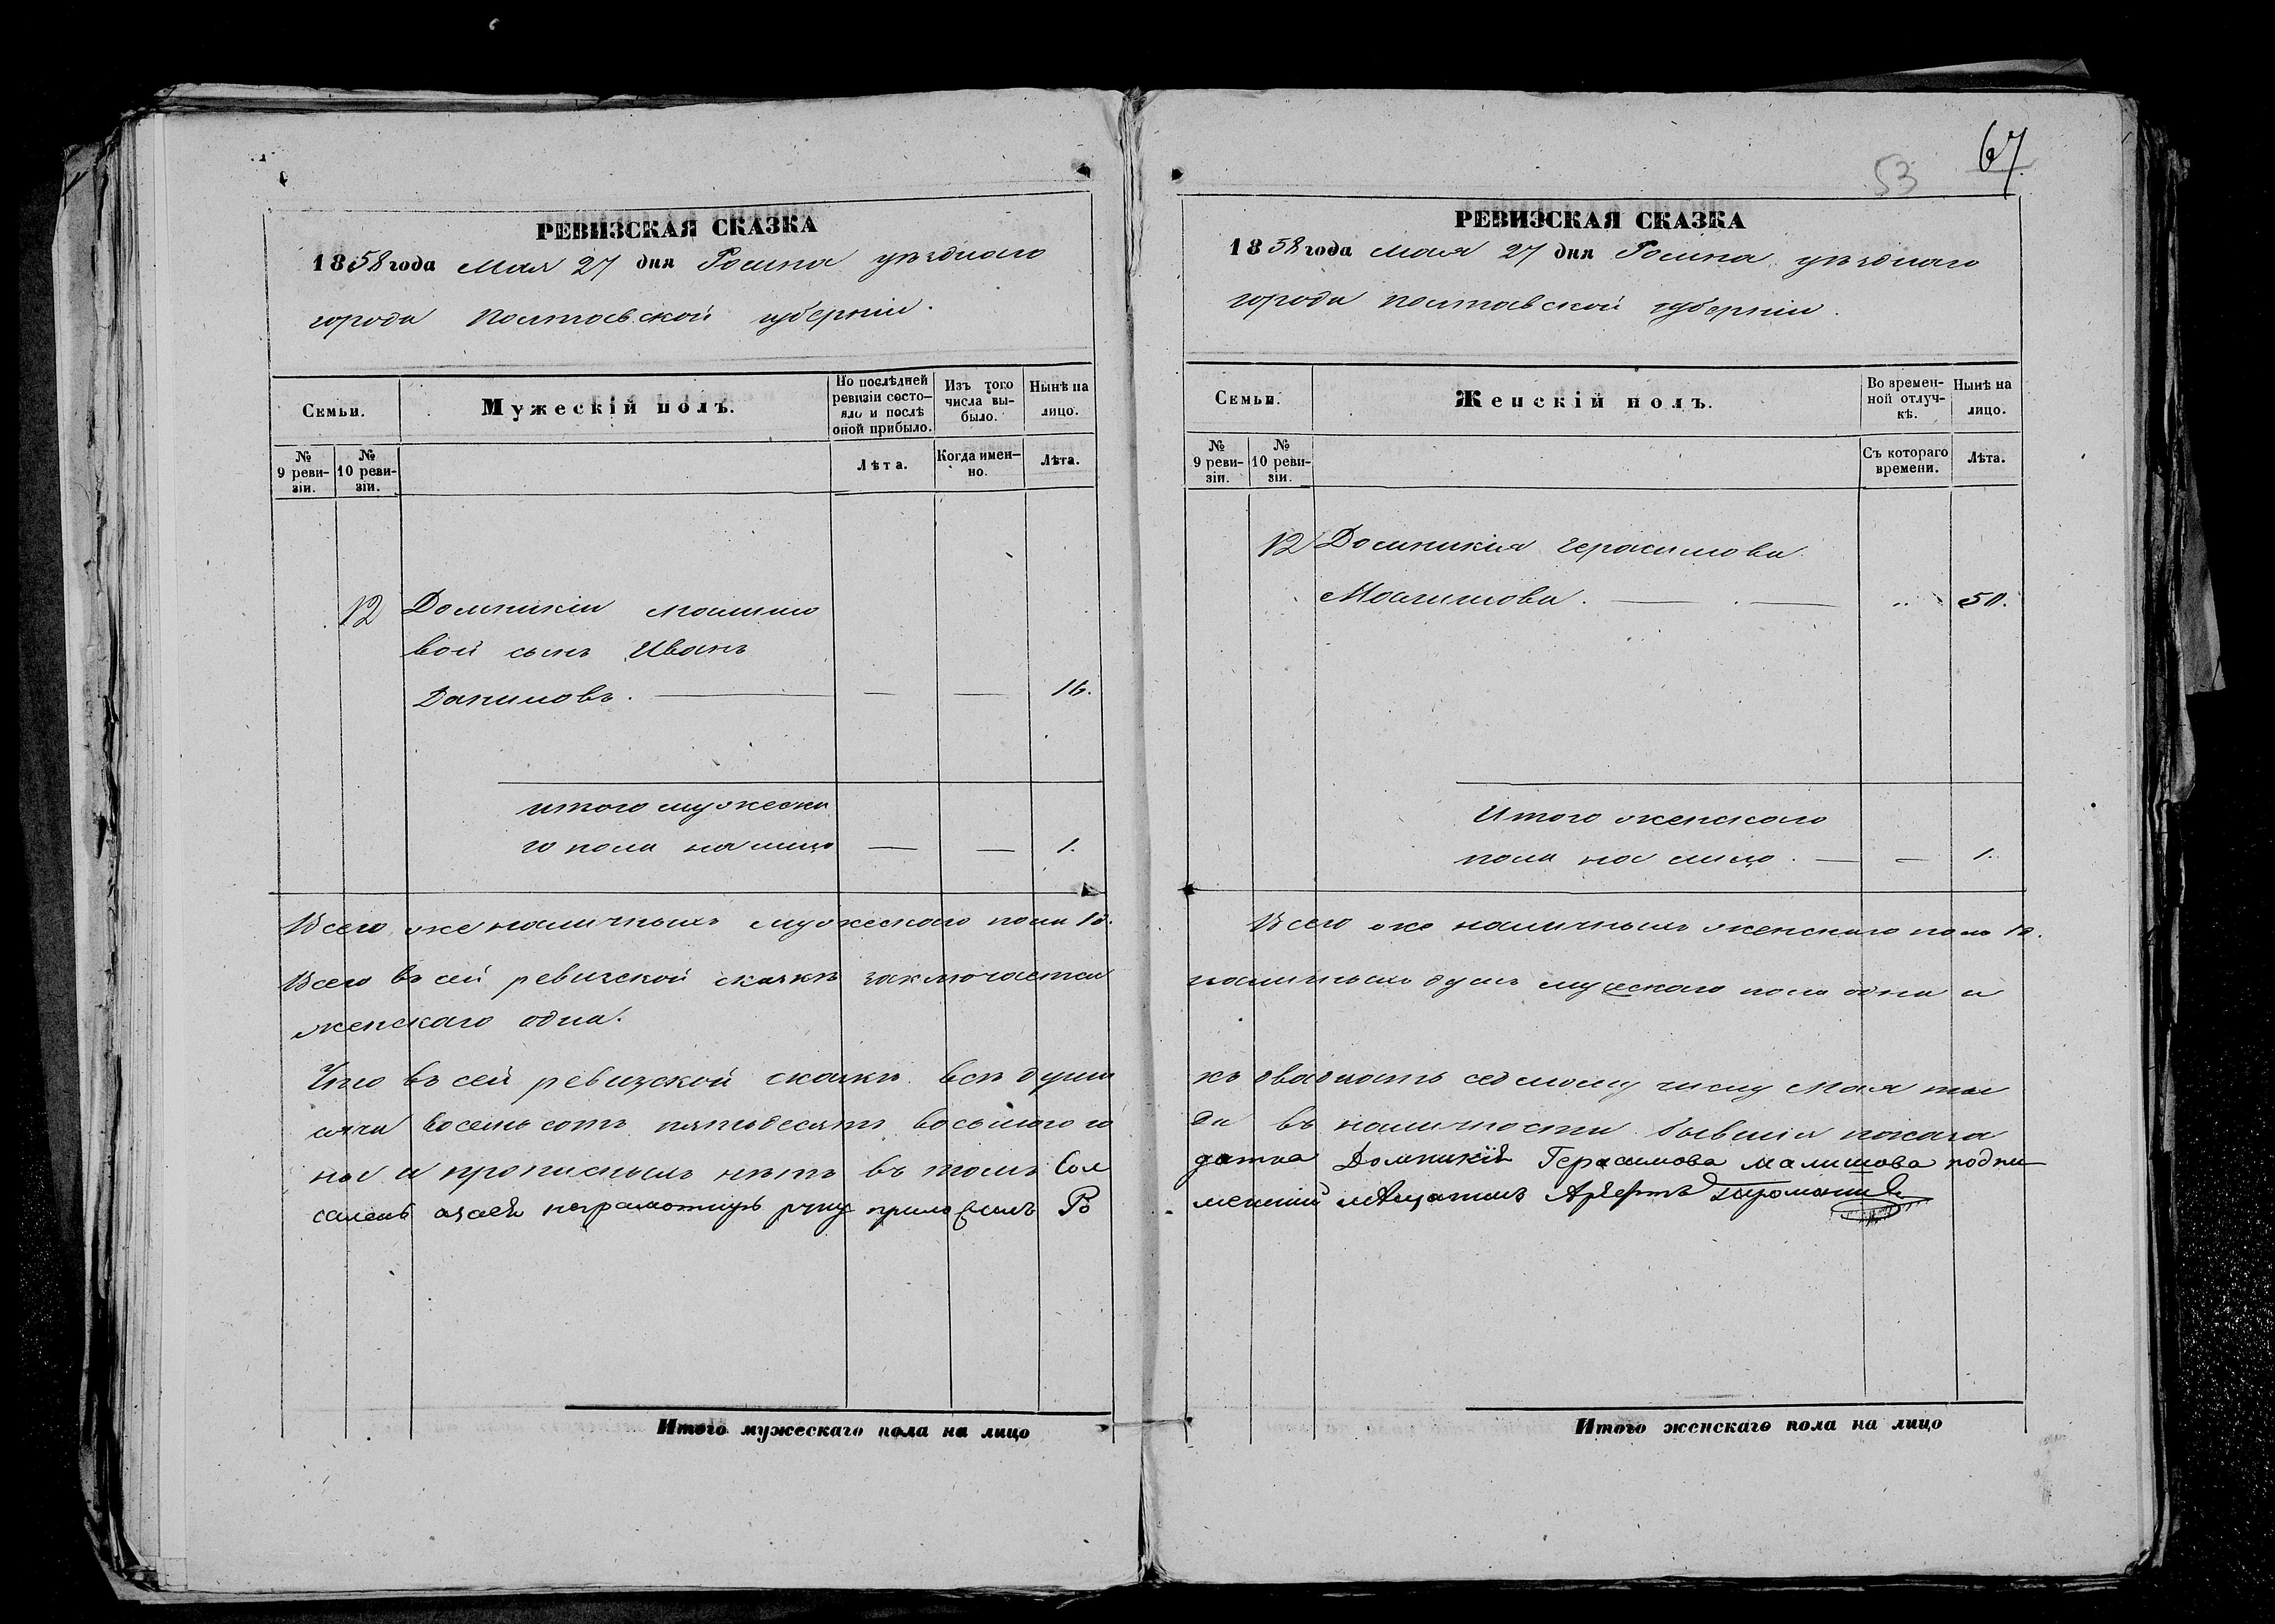 67
53
РЕВИЗСКАЯ СКАЗКА
1858 года Мая 27 дня Ромна уѣзднаго
города Полтавской губерніи.
Семьи.
Мужескій полъ.
По послѣдней ревизіи состояло и послѣ оной прибыло.
Изъ того числа выбыло.
Нынѣ на лицо.
№ 9 ревизіи.
№ 10 ревизіи.
Лѣта.
Когда именно.
Лѣта.
12 Домникіи Малишо
вой сынъ Иванъ
Даниловъ. — — — 16.
Итого мужеска
го пола на лицо — — 1.
Всего же наличныхъ мужескаго пола 1.
Всего въ сей ревизской сказкѣ заключается
женскаго одна.
Что въ сей ревизской сказкѣ всѣ души
сяча восемь сотъ пятьдесятъ восьмого го
ны и прописныхъ нѣтъ въ томъ Сол
саленъ а за неграмотную руку приложилъ Ро
Итого мужескаго пола на лицо
РЕВИЗСКАЯ СКАЗКА
1858 года Мая 27 дня Ромна уѣзднаго
города Полтавской губерніи.
Семьи.
Женскій полъ.
Во временной отлучкѣ.
Нынѣ на лицо.
№ 9 ревизіи.
№ 10 ревизіи.
Съ котораго времени.
Лѣта.
12 Домникия Герасимова
Малишова. — — „ 50.
Итого женскаго
пола на лицо. — — 1.
Всего же наличныхъ женскаго пола
наличныхъ душъ мужескаго пола одна и
къ двадцать седьмому числу Мая ты
да въ наличности бывшія показа
датка Домникія Герасимова Малишова подпи
менскій мѣщанинъ
Итого женскаго пола на лицо